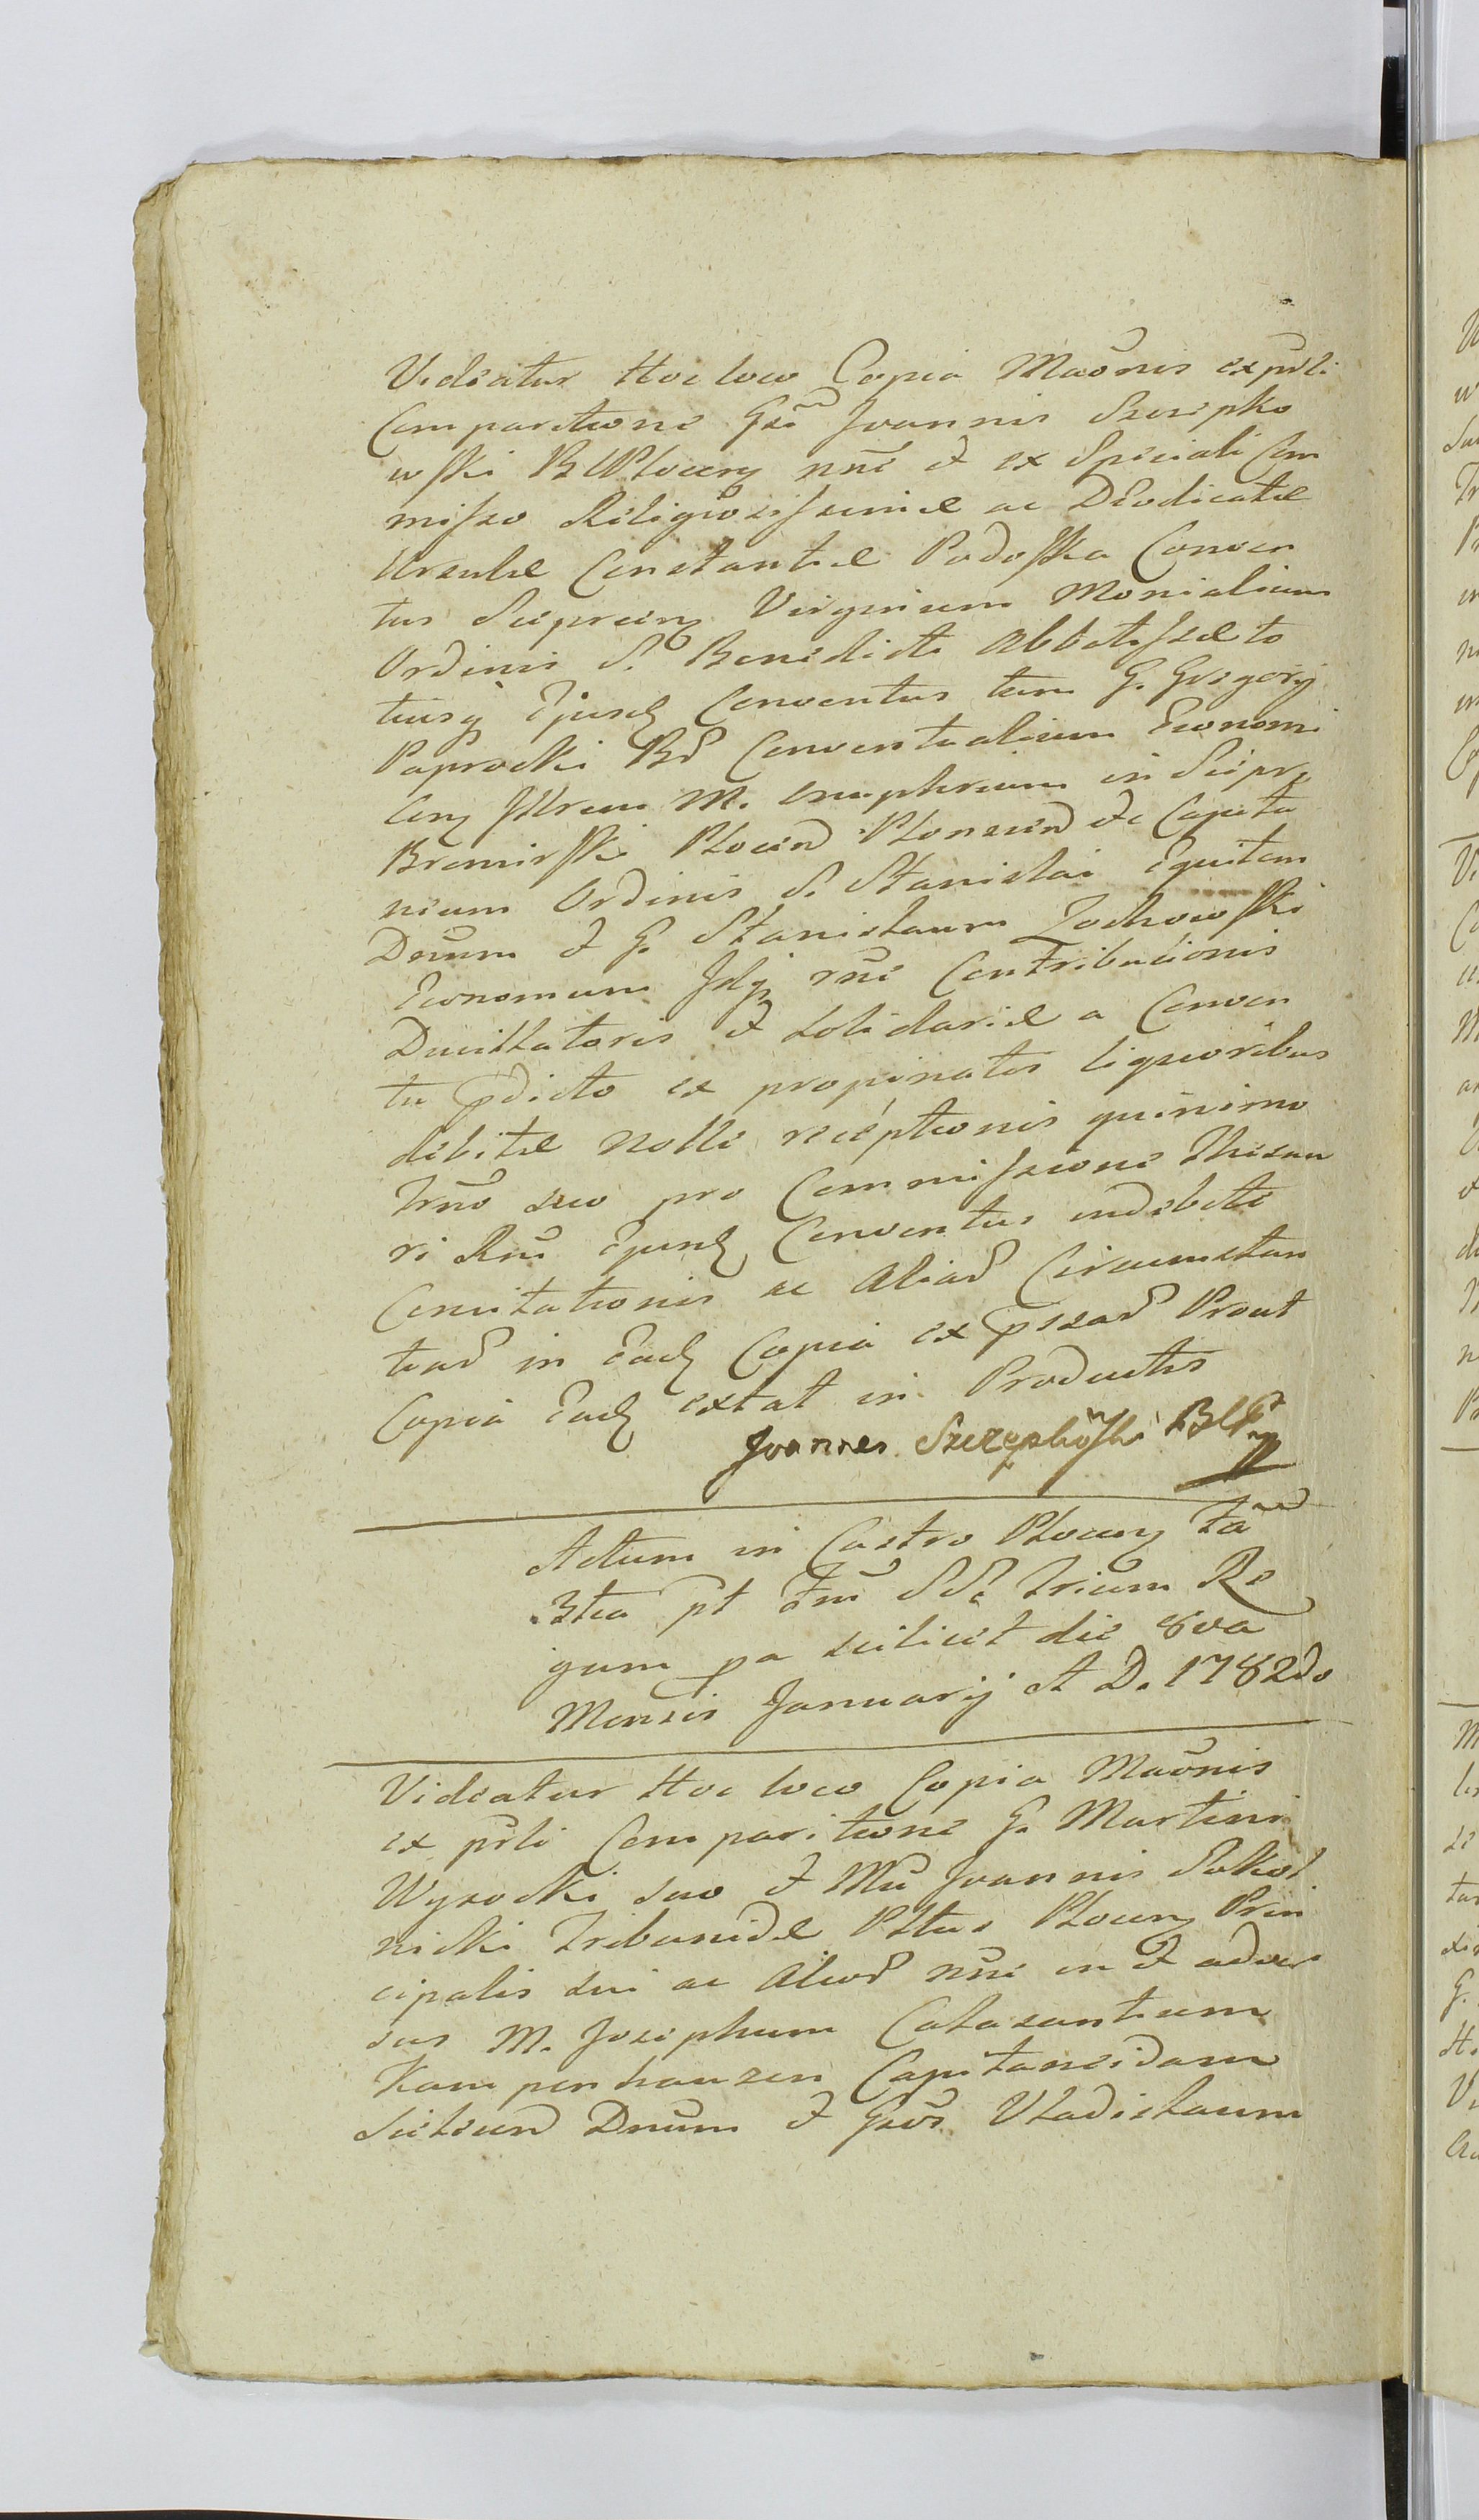 Videatur Hoc loco Copia Maõnis ex pñli
Comparitione Gsi Joannis Szczepko
wski BLPlocen nñe et ex Speciali Com
misso Religiosissimæ ac Deodicatæ
Ursulæ Constantiæ Podoska Conven
tus Sieprcen Virginum Monialium
Ordinis S. Benedicti Abbatissæ to
tiusq Ejusd Conventus tum G. Gregorij
Paprocki Bd Conventualium Economi
Con Illrem M. Onuphrium in Sieprc
Bromirski Plocen Plonscen etc Capita
neum Ordinis S. Stanislai Equitem
Dnum et G. Stanislaum Zochowski
Economum Idq rñe Contributionis
Ducillatoris et solidariæ a Conven
tu pdicto ex propinatis liquoribus
debitæ Nolle receptionis quinimo
Irño suo pro Commissione Thesau
ri Rni Ejusd Conventus indebite
Concitationis ac Aliar Circumstan
tiar in Ead Copia expssar Prout
Copia Ead extat in Productis
Joannes Szczepkowski BLP
Actum in Castro Plocen fa
3tia pt Fm SS. Trium Re
gum pa scilicet die 8va
Mensis Januarij A D. 1782do
Videatur Hoc loco Copia Maõnis
ex pñli Comparitione G. Martini
Wysocki suo et Mci Joannis Sokol
nicki Tribunidæ Pttus Plocen Prin
cipalis sui ac Alior nñe in et adver
sus M. Josephum Calasantium
Kampenhauzen Capitaneidam
Dnum et Gsos Vladislaum